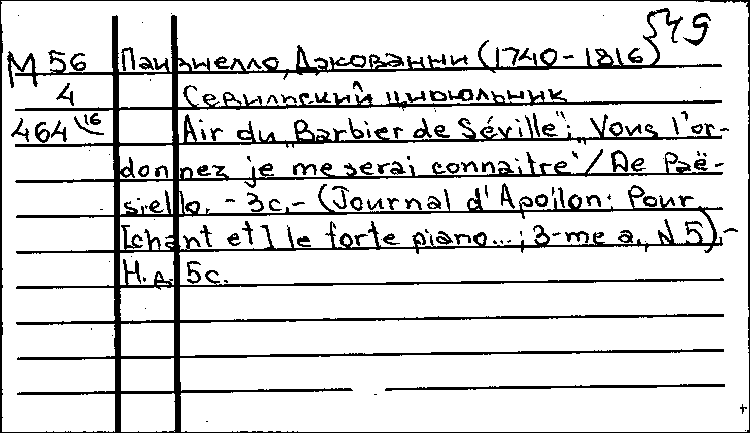 549
М 56 Паизиелло, Джованни (1740-1816)
4 Севильский цирюльник
464 16 Air du „Barbier de Séville“; „Vous l'or-
donnez je me serai connaitre“ / De Paë-
siello. - 3c.- (Journal d'Apollon: Pour
[chant et] le forte piano...; 3-me a., N 5).-
Н.д. 5c.